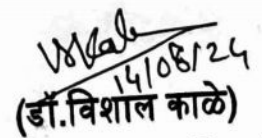 14/08/24
(डॉ.विशाल काळे)